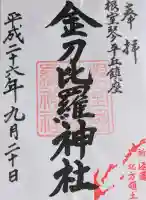 奉拝
根室琴平丘鎮座
金刀比羅神社
平成二十八年九月二十日
北方領土